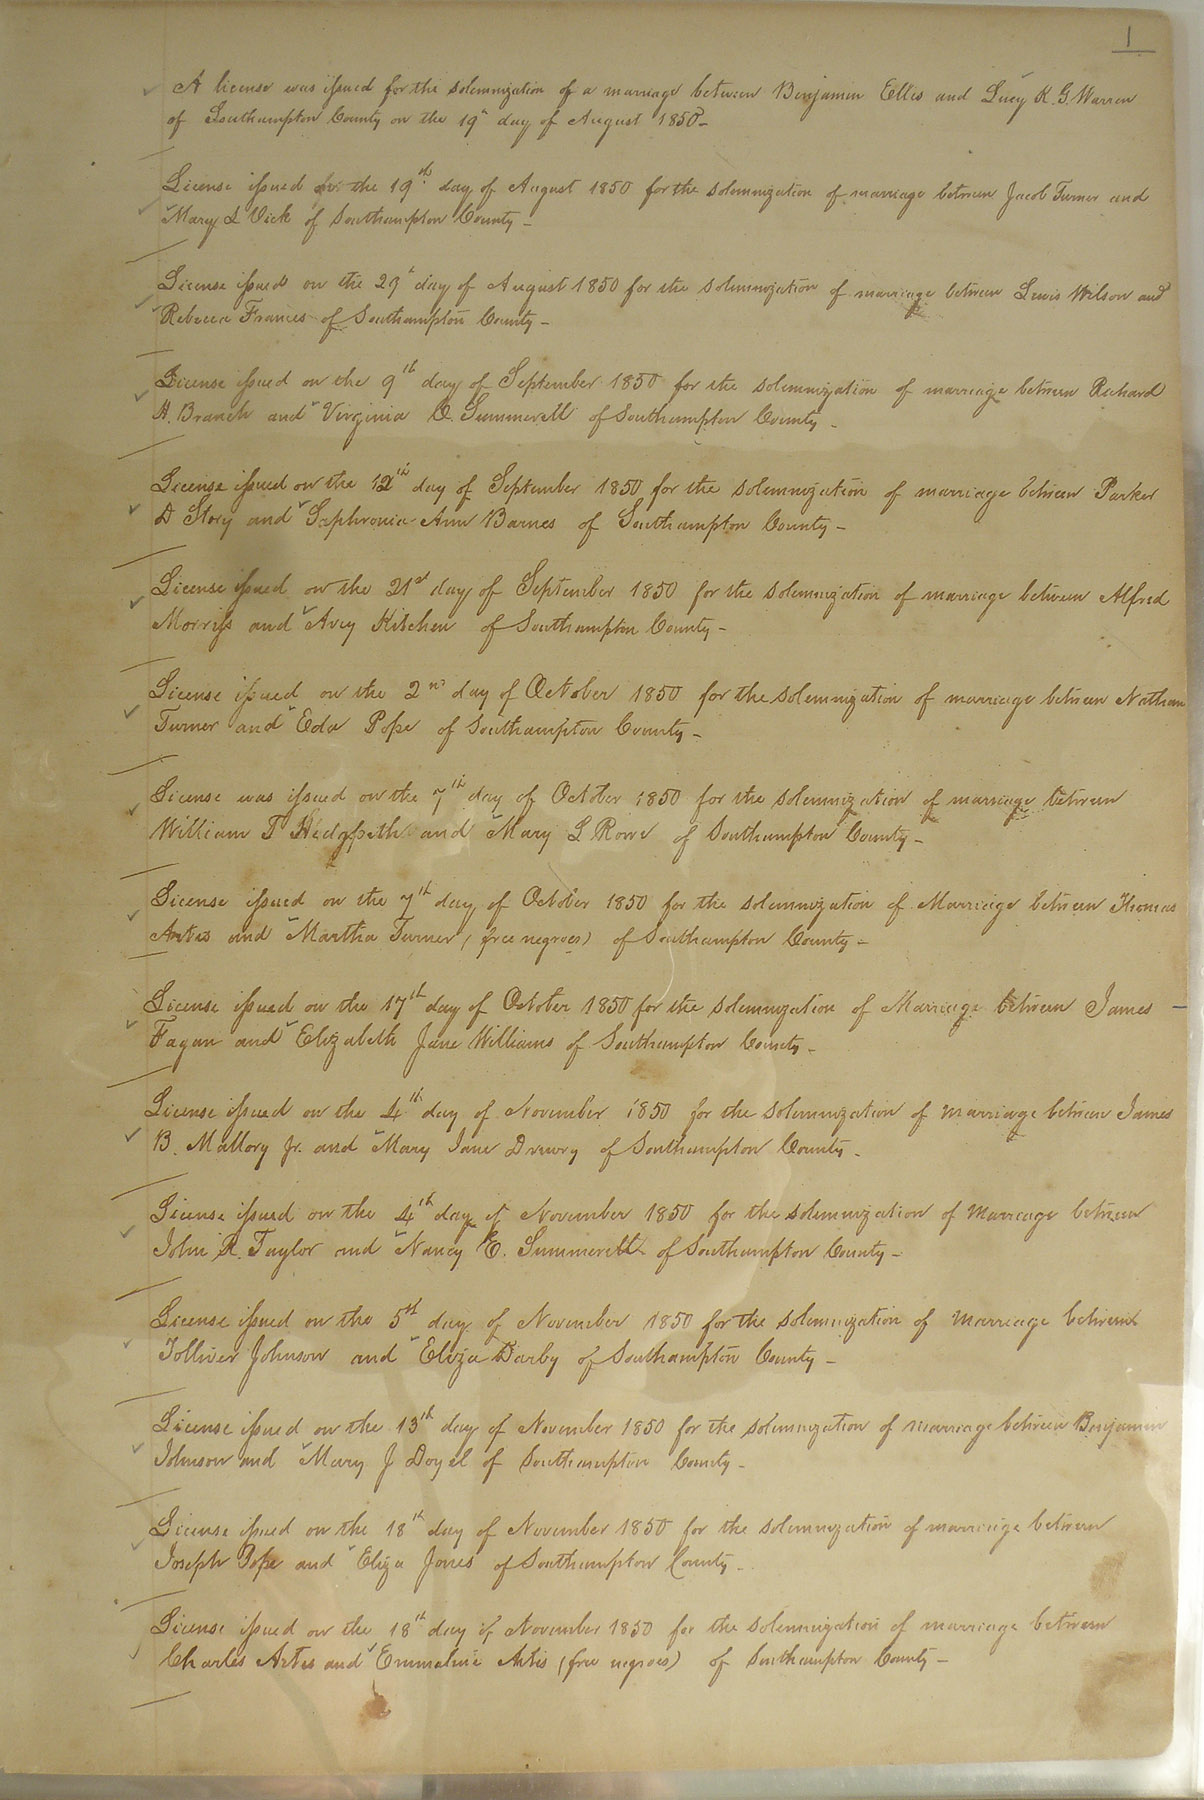 1
A license was issued for the solemnization of a marriage between Benjamin Ellis and Lucy R. G. Warren
of Southampton County on the 19th day of August 1850-
License issued the 19th day of August 1850 for the solemnization of marriage between Jacob Turner and
Mary L Vick of Southampton County-
License issued on the 29th day of August 1850 for the solemnization of marriage between Lewis Wilson and
Rebecca Frances of Southampton County-
License issued on the 9th day of September 1850 for the solemnization of marriage between Richard
H. Branch and Virginia C. Summerell of Southampton County-
License issued on the 12th day of September 1850 for the solemnization of marriage between Parker
D Story and Sophronia Ann Barnes of Southampton County-
License issued on the 21st day of September 1850 for the solemnization of marriage between Alfred
Morriss and Avey Kitchen of Southampton County-
License issued on the 2nd day of October 1850 for the solemnization of marriage between Nathan
Turner and Eda Pope of Southampton County-
License was issued on the 7th day of October 1850 for the solemnization of marriage between
William T Hedgpeth and Mary L Rowe of Southampton County-
License issued on the 7th day of October 1850 for the solemnization of Marriage between Thomas
Artis and Martha Turner (free negroes) of Southampton County-
License issued on the 17th day of October 1850 for the solemnization of Marriage between James
Fagan and Elizabeth Jane Williams of Southampton County-
License issued on the 4th day of November 1850 for the solemnization of marriage between James
B. Mallory Jr. and Mary Jane Drewry of Southampton County.
License issued on the 4th day of November 1850 for the solemnization of Marriage between
John R. Taylor and Nancy E. Summerell of Southampton County-
License issued on the 5th day of November 1850 for the solemnization of Marriage between
Tolliver Johnson and Eliza Darby of Southampton County-
License issued on the 13th day of November 1850 for the solemnization of marriage between Benjamin
Johnson and Mary J Doyel of Southampton County-
License issued on the 18th day of November 1850 for the solemnization of marriage between
Joseph Pope and Eliza Jones of Southampton County-
License issued on the 18th day of November 1850 for the solemnization of marriage between
Charles Artis and Emmaline Artis (free negroes) of Southampton County-